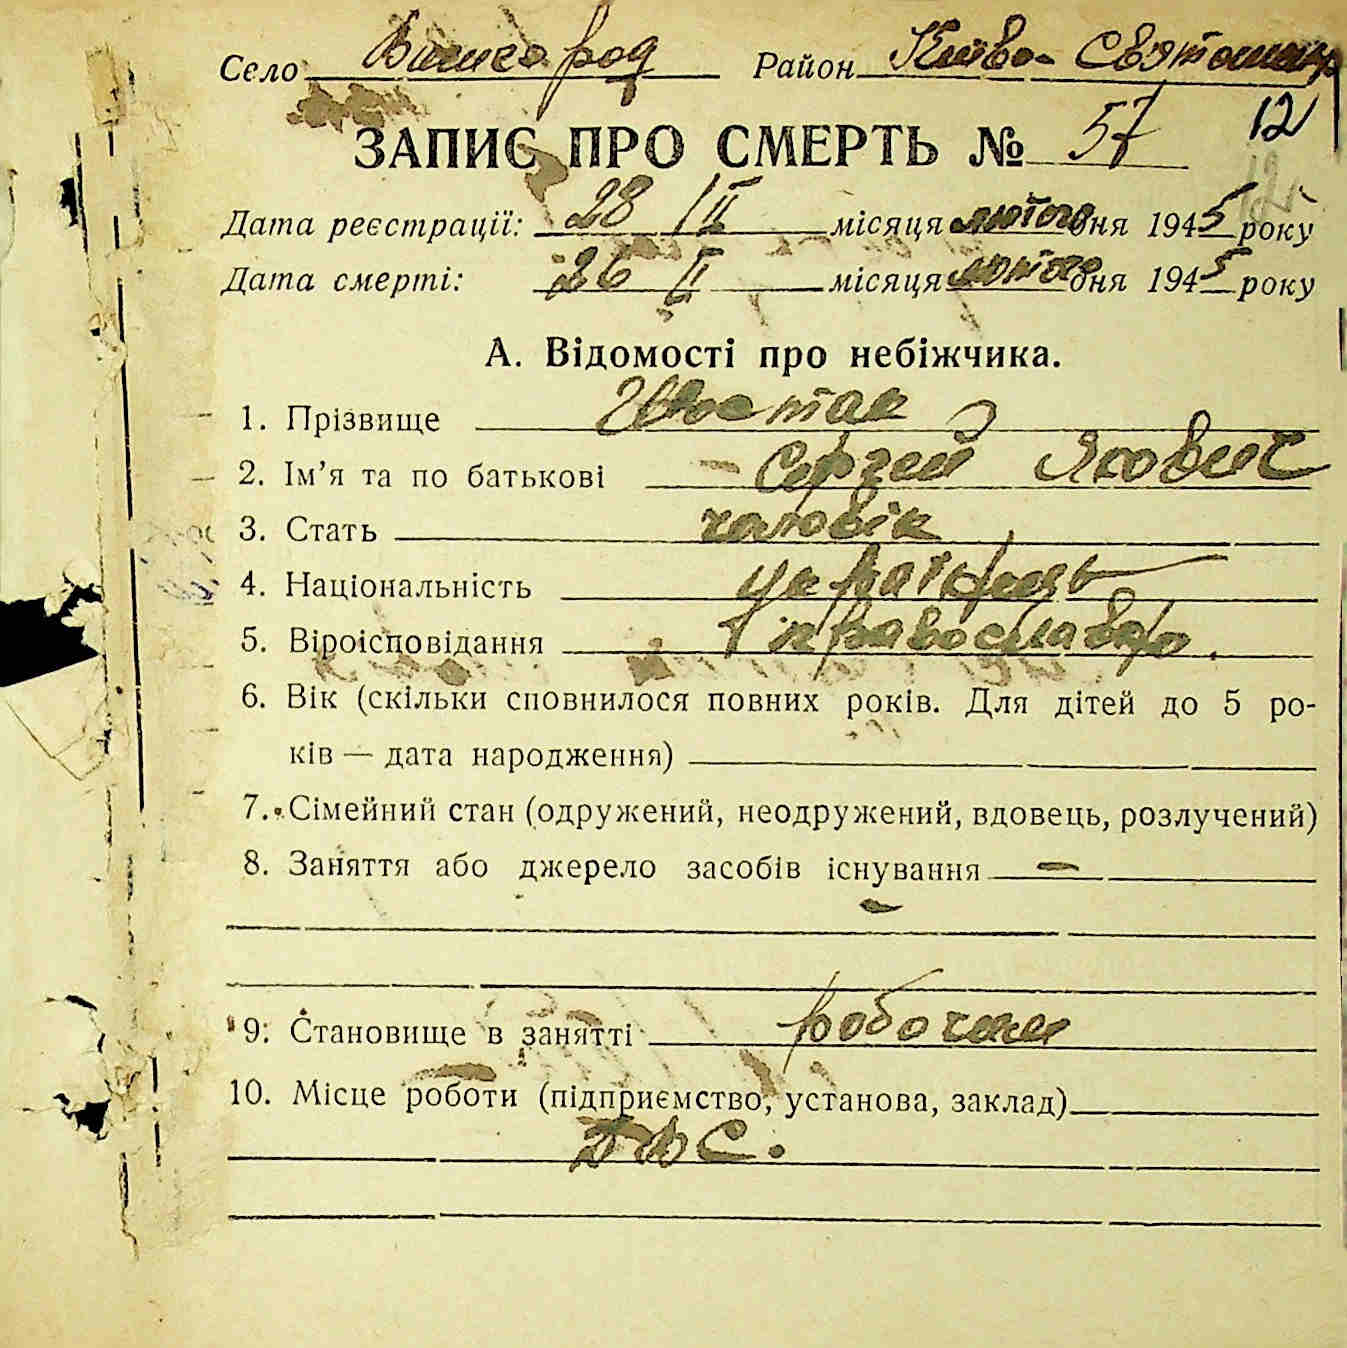 Село Вишгород Район Київо-Святошин
12
ЗАПИС ПРО СМЕРТЬ № 57
Дата реєстрації: 28 /II місяця лютого дня 1945 року
Дата смерті: 26 II місяця лютого дня 1945 року
А. Відомості про небіжчика.
1. Прізвище Шостак
2. Ім'я та по батькові Сергей Якович
3. Стать чоловік
4. Національність українець
5. Віроісповідання православ
6. Вік (скільки сповнилося повних років. Для дітей до 5 ро-
ків — дата народження)
7. Сімейний стан (одружений, неодружений, вдовець, розлучений)
8. Заняття або джерело засобів існування —
9. Становище в занятті
10. Місце роботи (підприємство, установа, заклад)